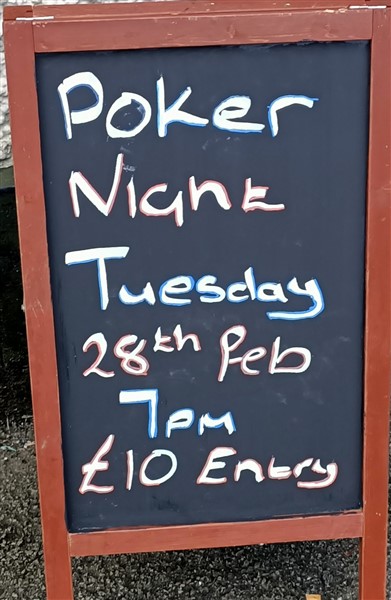 Poker
Night
Tuesday
28th Feb
7pm
£10 Entry